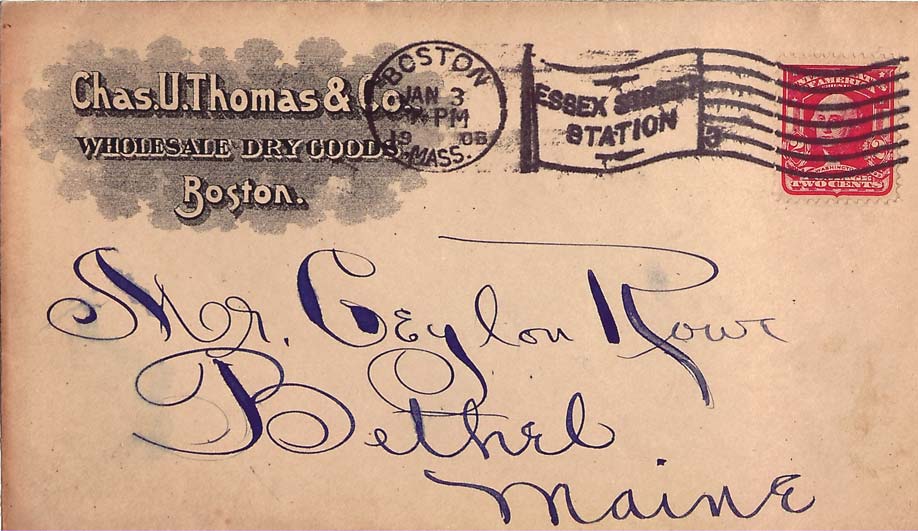 Chas. U. Thomas & Co.
WHOLESALE DRY GOODS
Boston.
BOSTON
JAN 3
PM
MASS.
ESSEX STREET
STATION
WASHINGTON
TWO CENTS
Mr. Ceylon Rowe
Bethel
Maine